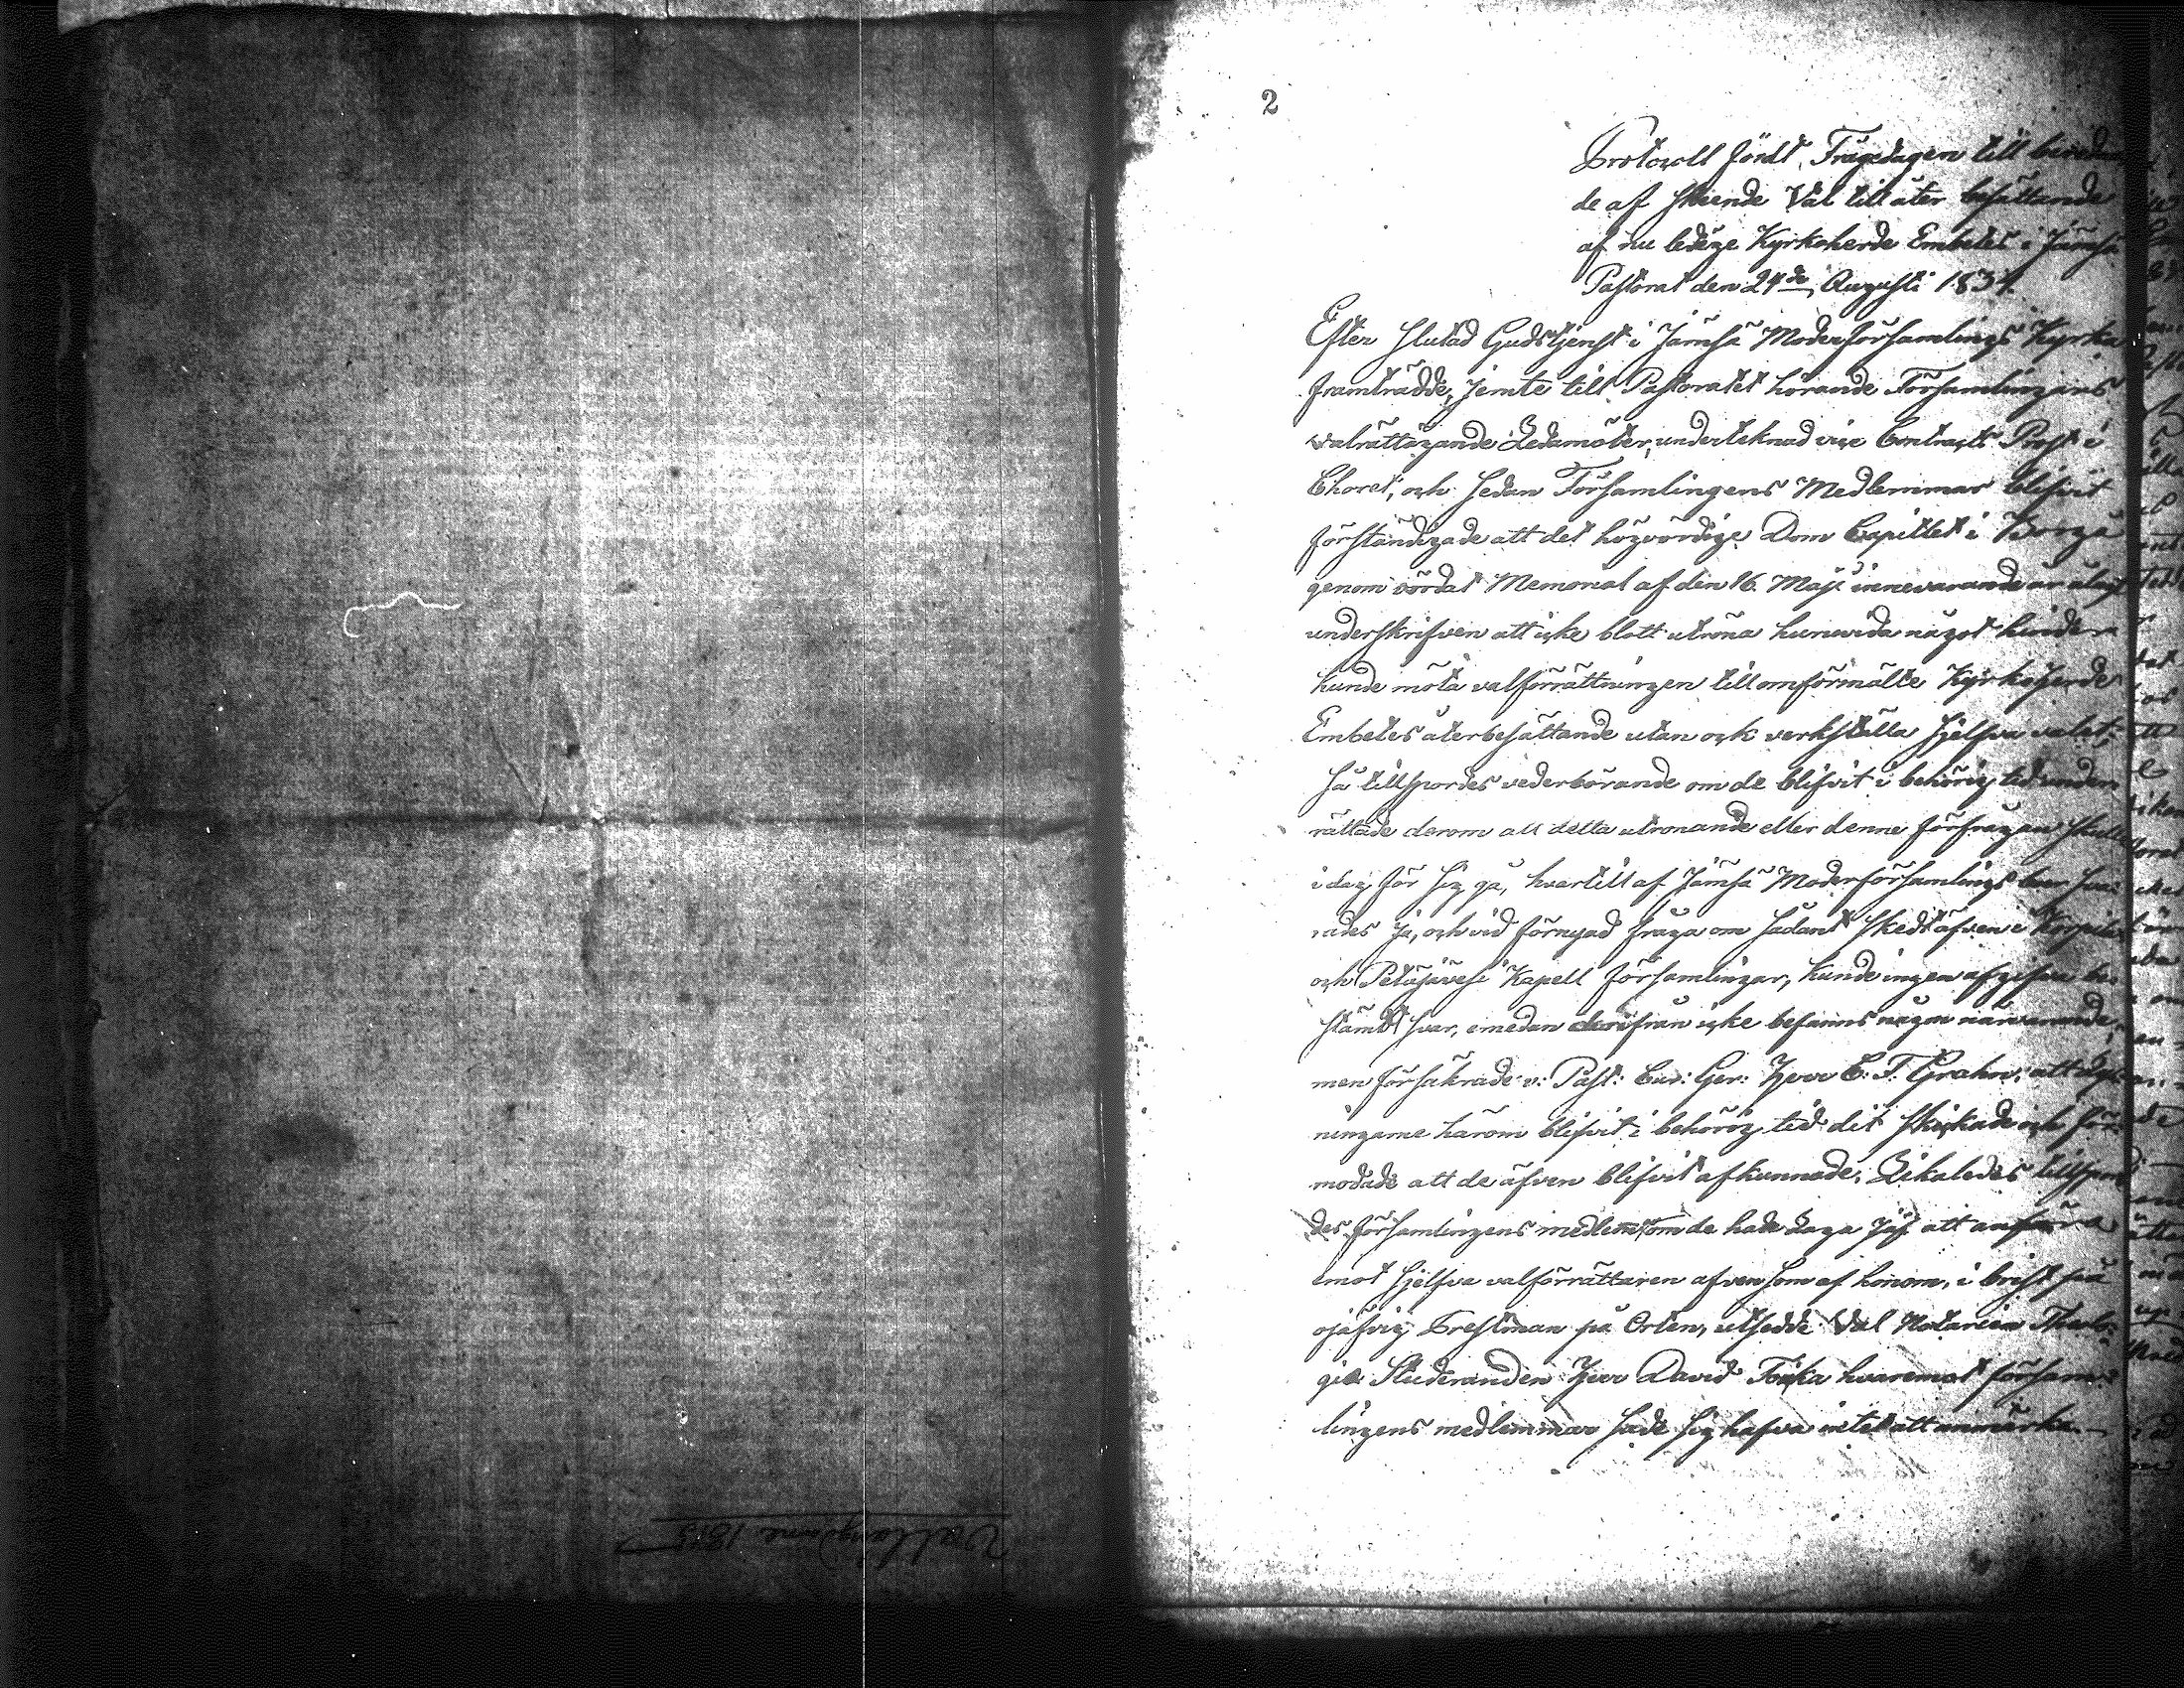 2
Protocoll fördt Fragedagen till beredan
de af skeende Val till åter besättande
af nu ledige Kyrkoherde Embetes i Jämsä
Pastorat den 24de Augusti 1834.
Efter slutad Gudstjenst i Jämsä Moderförsamlings Kyrka
framträdde, jemte till Pastoratet hörande Församlingens
valrättägande Ledamöter, undertecknad vice Contracts Prost i
Choret, och sedan Församlingens Medlemmar blifvit
förständigade att det högvördige Dom Capittlet i Borgå
genom vördat Memorial af den 16. Maji innevarande år
underskrifven att icke blott utröna huruvida något hinder
kunde möta valförrättningen till omförmälte Kyrkoherde
Embetes återbesättande utan ock verkställa sjelfva valet;
Så tillspordes vederbörande om de blifvit i behörig tid under
rättade derom att detta utrönande eller denne förfrågan skulle
i dag för sig gå, hvartill af Jämsä Moderförsamlings boer sva-
rades ja, och vid förnyad fråga om sådant skedt äfven i
och Petäjävesi Kapell församlingar, kunde ingen afgifva be-
stämdt svar, emedan derifrån icke befanns någon närvarande,
men försäkrade v: Past: Cur: Ger: Herr C: F. Grahn, att lys-
ningarne härom blifvit i behörig tid dit skickade och för-
modade att de äfven blifvit afkunnade. Likaledes tillspor
des församlingens medlem: om de hade laga jäf att anföra
emot sjelfva valförrättaren äfven som af honom, i brist på
ojäfvig Prestman på Orten, utsedde Val Notarien Theolo-
gie Studeranden Herr David hvaremot försam-
lingens medlemmar sade sig hafva intet att anmärka. —
1835